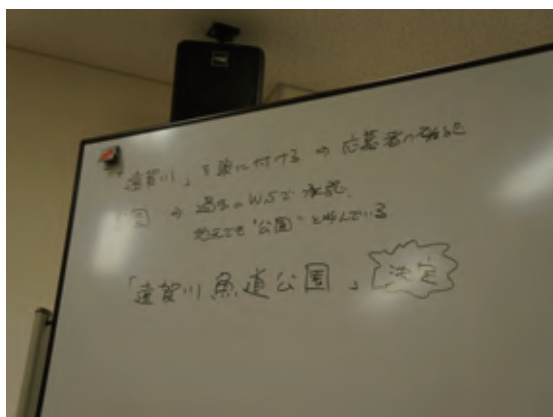 「遠賀川」を頭に付ける ⇒ 応募者に確認
公園 ⇒ 過去のWSで承認.
地元でも"公園"と呼んでいる
「遠賀川魚道公園」 決定